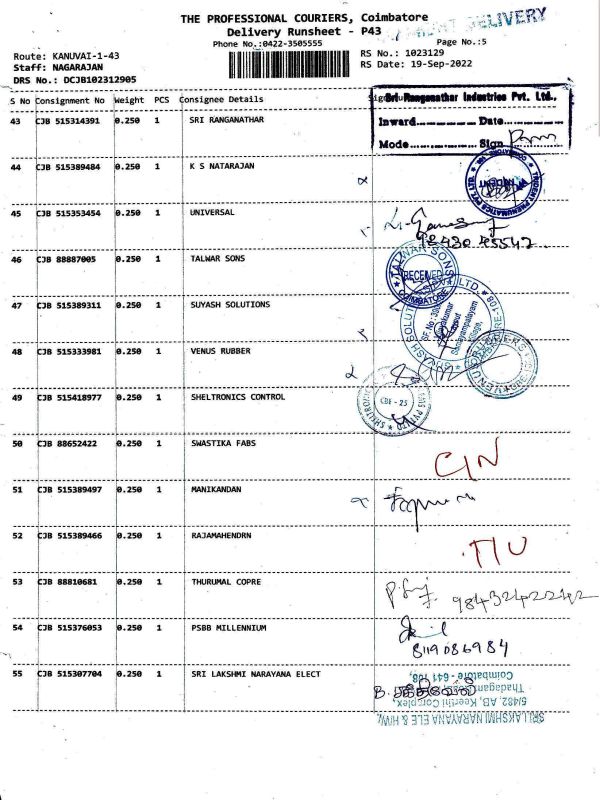 THE PROFESSIONAL COURIERS, Coimbatore
DELIVERY
Delivery Runsheet - P43
Phone No.:0422-3505555
Page No.:5
Route: KANUVAI-1-43
RS No.: 1023129
Staff: NAGARAJAN
RS Date: 19-Sep-2022
DRS No.: DCJB102312905
S No Consignment No Weight PCS Consignee Details
Sri Ranganathar Industries Pvt. Ltd.,
43 CJB 515314391 0.250 1 SRI RANGANATHAR
Inward Date
Mode Sign
44 CJB 515389484 0.250 1 K S NATARAJAN
TRIDENT PNEUMATICS PVT. LTD.
TRIDENT
45 CJB 515353454 0.250 1 UNIVERSAL
98430 45542
46 CJB 88887005 0.250 1 TALWAR SONS
TALWAR SONS
RECEIVED
COIMBATORE
47 CJB 515389311 0.250 1 SUYASH SOLUTIONS
48 CJB 515333981 0.250 1 VENUS RUBBER
49 CJB 515418977 0.250 1 SHELTRONICS CONTROL
CBE - 25
50 CJB 88652422 0.250 1 SWASTIKA FABS
C/N
51 CJB 515389497 0.250 1 MANIKANDAN
52 CJB 515389466 0.250 1 RAJAMAHENDRN
53 CJB 88810681 0.250 1 THURUMAL COPRE
9843242242
54 CJB 515376053 0.250 1 PSBB MILLENNIUM
8119086984
55 CJB 515307704 0.250 1 SRI LAKSHMI NARAYANA ELECT
SRI LAKSHMI NARAYANA ELE & H/W,
5/482, AB, Keerthi Complex,
Coimbatore - 641 108,